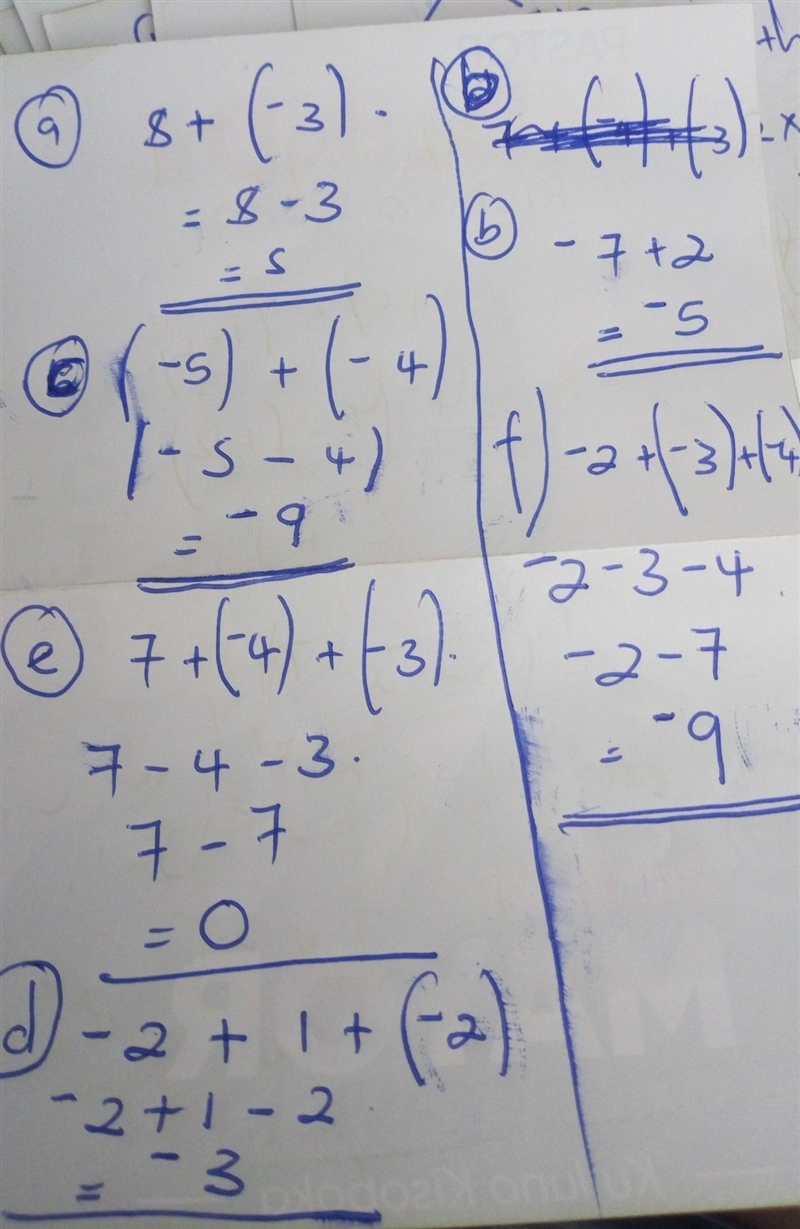 a 8 + (-3).
= 8 - 3
= 5
c (-5) + (-4)
(-5 - 4)
= -9
e 7 + (-4) + (-3).
7 - 4 - 3.
7 - 7
= 0
d -2 + 1 + (-2)
-2 + 1 - 2
= -3
b
b -7 + 2
= -5
f) -2 + (-3) + (-4)
-2 - 3 - 4
-2 - 7
= -9